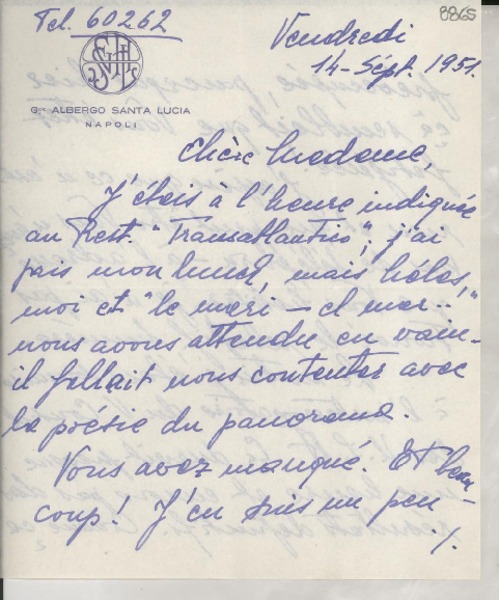 8865
Tel. 60262
Vendredi
14-Sépt. 1951.
Gd. ALBERGO SANTA LUCIA
NAPOLI
Chère Madame,
J'étais à l'heure indiquée
au Rest. "Transatlantico"; j'ai
pris mon lunch, mais hélas,
moi et "le mari — el mar..."
nous avons attendu en vain -
il fallait nous contenter avec
la poésie du panorama.
Vous avez manqué. Et beau-
coup! J'en suis un peu -
./.